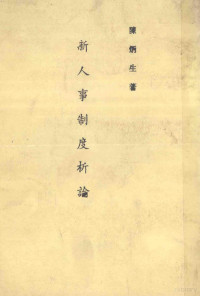 陳炳生著
新人事制度析論